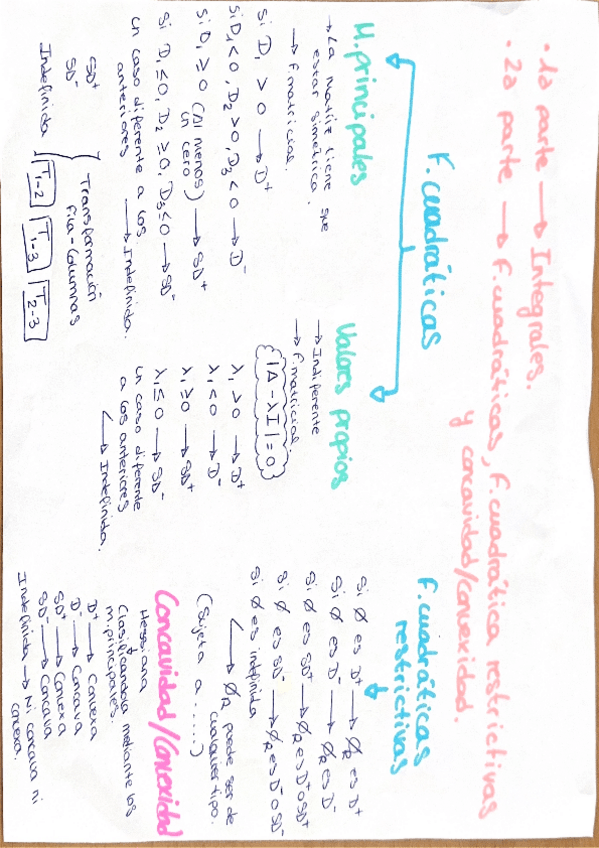 · 1a parte → Integrales.
· 2a parte → F. cuadráticas, F. cuadrática restrictivas
y concavidad/convexidad.
F. cuadráticas
M. principales
→ La matriz tiene que
estar simétrica.
→ F. matricial.
Si D₁ > 0 → D⁺
Si D₁ < 0, D₂ > 0, D₃ < 0 → D⁻
Si D₁ ≥ 0 (Al menos un cero) → SD⁺
Si D₁ ≤ 0, D₂ ≥ 0, D₃ ≤ 0 → SD⁻
Un caso diferente a los
anteriores → Indefinida.
SD⁺
SD⁻
Indefinida
Transformación
fila-columnas
T₁₋₂ T₁₋₃ T₂₋₃
Valores propios
→ Indiferente
→ F. matricial.
|A - λI| = 0
λ₁ > 0 → D⁺
λ₁ < 0 → D⁻
λ₁ ≥ 0 → SD⁺
λ₁ ≤ 0 → SD⁻
Un caso diferente
a los anteriores
→ Indefinida.
F. cuadráticas
restrictivas
Si Ø es D⁺ → ØR es D⁺
Si Ø es D⁻ → ØR es D⁻
Si Ø es SD⁺ → ØR es D⁺ o SD⁺
Si Ø es SD⁻ → ØR es D⁻ o SD⁻
Si Ø es indefinida
→ ØR puede ser de
cualquier tipo.
(Sujeta a ......)
Concavidad/Convexidad
Hessiana
Clasificándola mediante los
m. principales.
D⁺ → Convexa
D⁻ → Cóncava
SD⁺ → Convexa
SD⁻ → Cóncava
Indefinida → Ni cóncava ni
convexa.